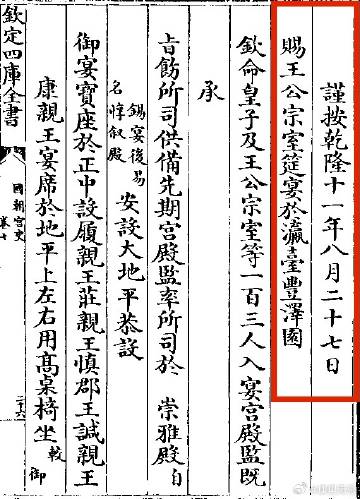 謹按乾隆十一年八月二十七日
賜王公宗室筵宴於瀛臺豐澤園
欽命皇子及王公宗室等一百三人入宴宮殿監既
承
旨飭所司供備先期宮殿監率所司於 崇雅殿自
錫宴後易名惇叙殿 安設大地平恭設
御宴寶座於正中設履親王莊親王慎郡王誠親王
康親王宴席於地平上左右用高桌椅坐較御
欽定四庫全書
國朝宮史
卷七
二十六